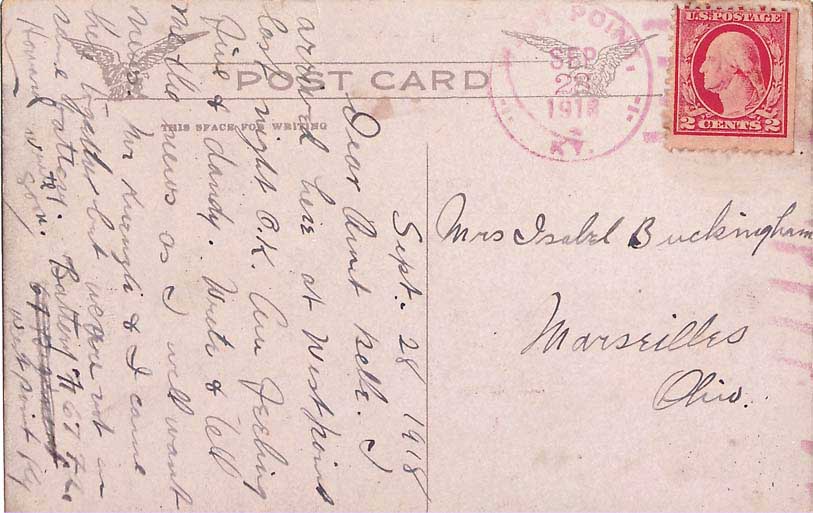 POST CARD
THIS SPACE FOR WRITING
U.S. POSTAGE
2 CENTS 2
WEST POINT
SEP
28
1918
KY.
Mrs Isabel Buckingham
Marseilles
Ohio.
Sept. 28 1918
Dear Aunt Belle. I
arrived here at Westpoint
last night O.K. Am feeling
fine & dandy. Write & tell
me the news as I will want
news. Mr & I came
here together but we are not in
same battery. Battery F 67th
West point Ky